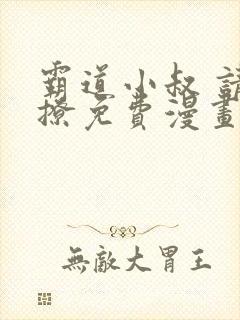 霸道小叔 請
撩免費漫畫
無敵大胃王